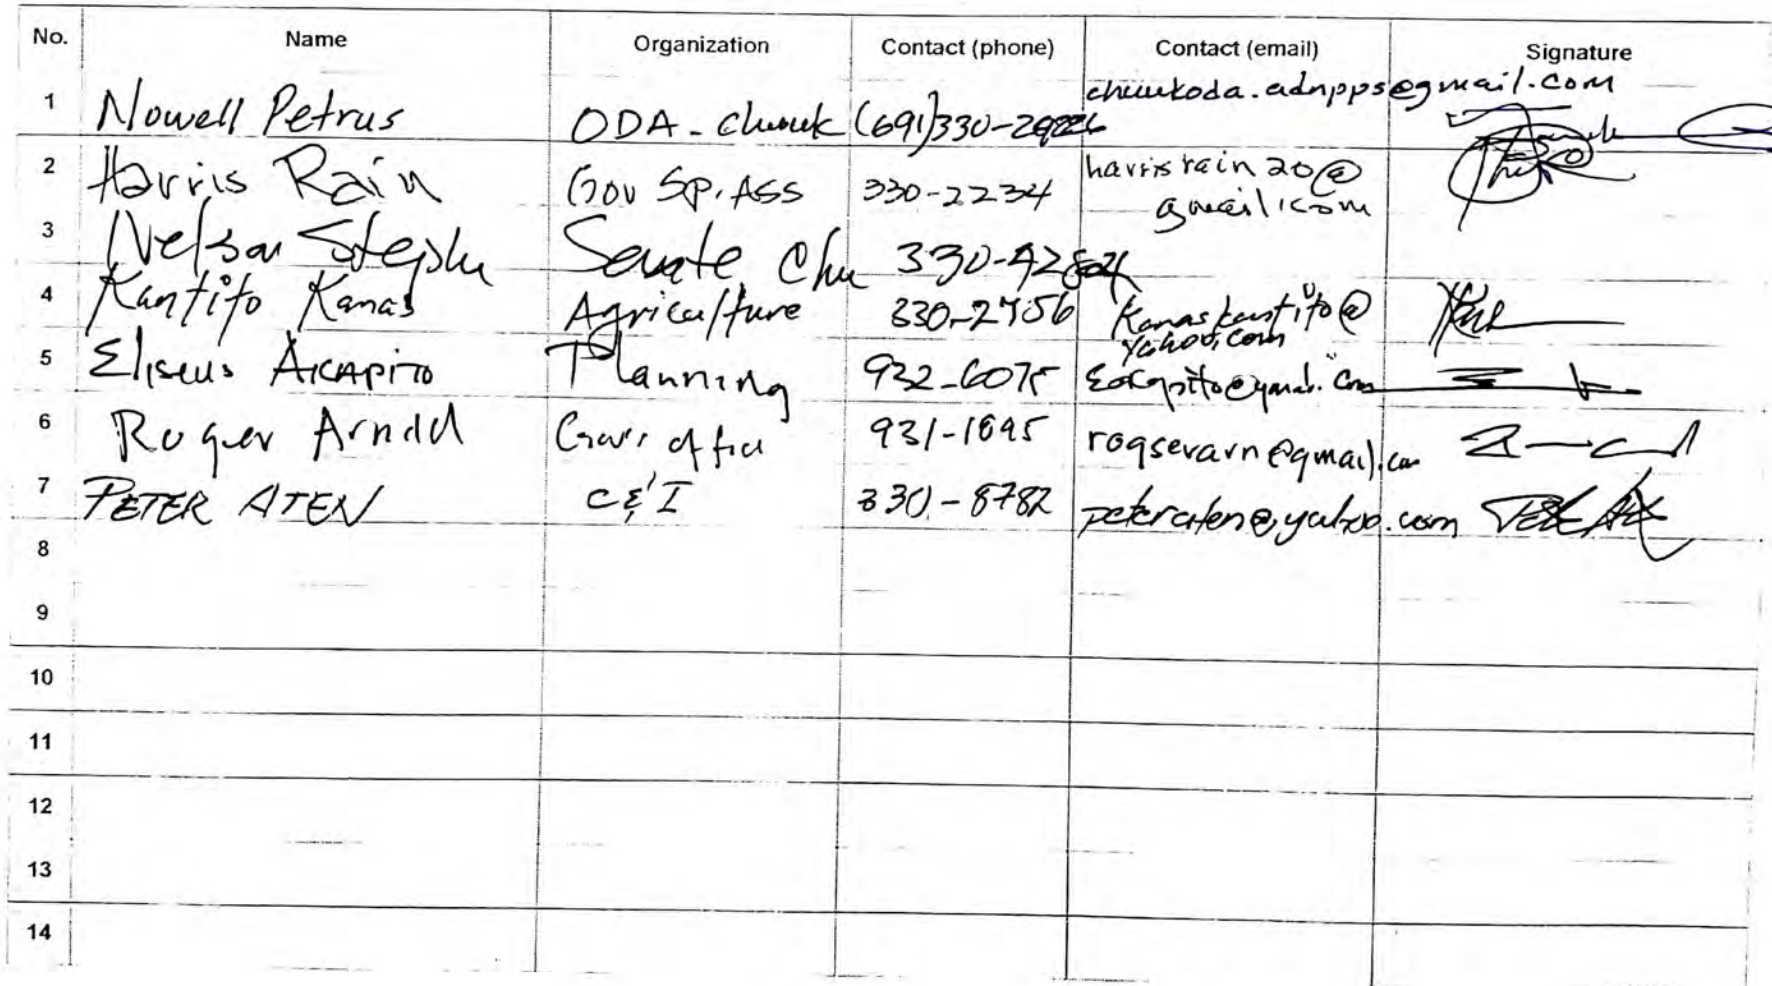 No. Name Organization Contact (phone) Contact (email) Signature
1 Nowell Petrus ODA - Chuuk (691)330- chuukoda.adnpps@gmail.com
2 Harris Rain Gov Sp. Ass 330-2234 harrisrain20@
gmail.com
3 Nelson Stephen Senate Chu
4 Kantito Kanas Agriculture 330-2756 Kanaskantito@
yahoo.com
5 Eliseus AKAPITO Planning 932-6075
6 Roger Arnold Gov's office 931-1895 rogserarn@gmail.com
7 PETER ATEN C & I 330-8782 peteraten@yahoo.com
8
9
10
11
12
13
14